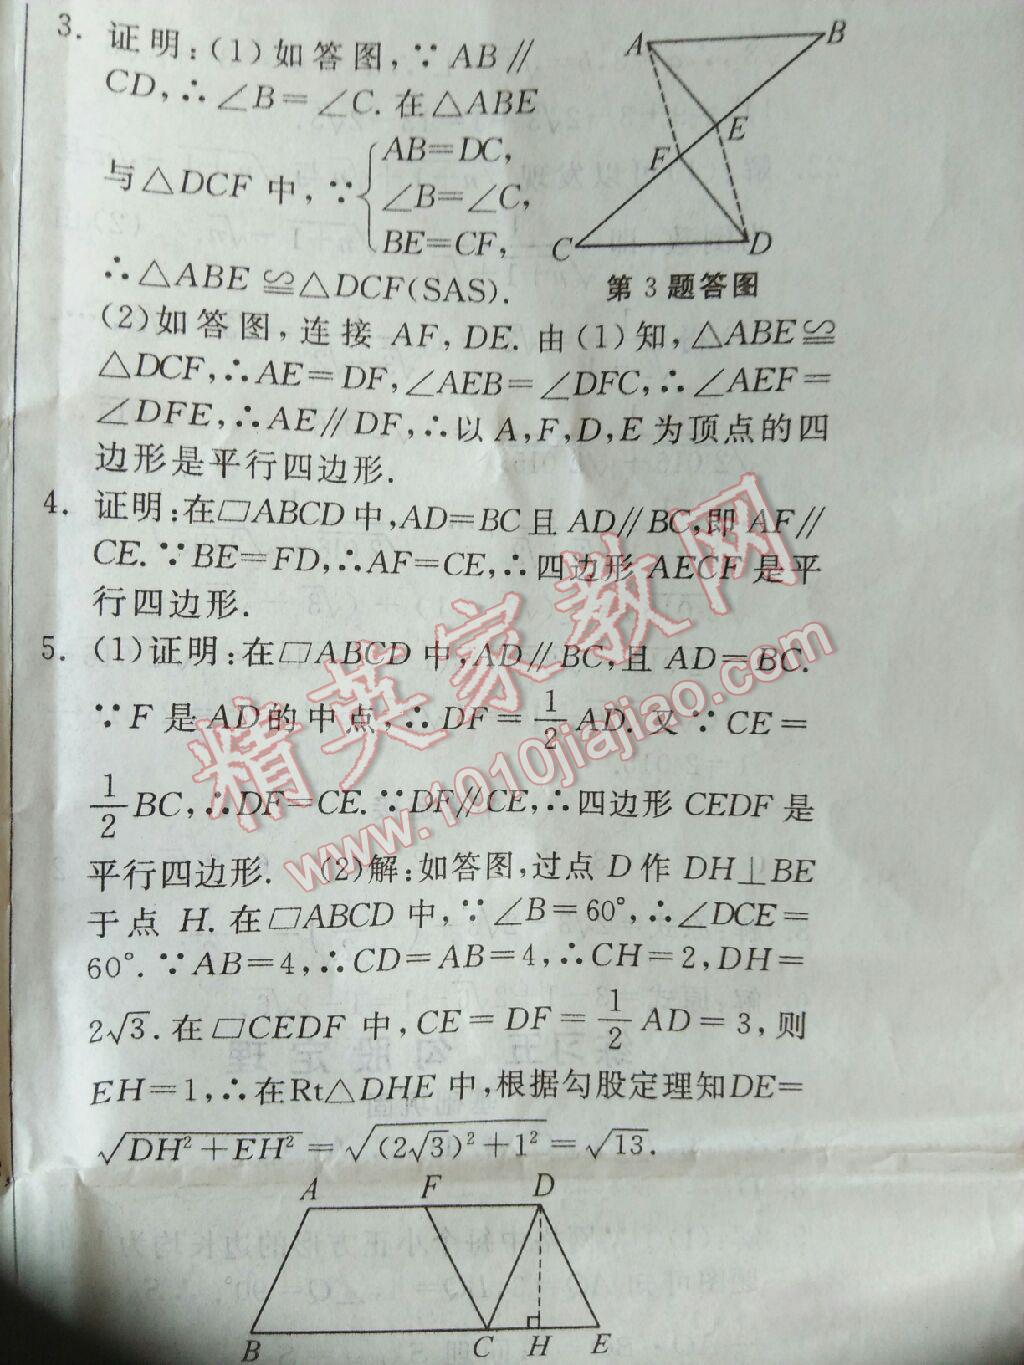 3. 证明:(1)如答图,∵AB∥
CD,∴∠B=∠C.在△ABE
与△DCF中,∵{AB=DC,
∠B=∠C,
BE=CF,
∴△ABE≌△DCF(SAS).
A
B
E
F
C
D
第3题答图
(2)如答图,连接 AF,DE.由(1)知,△ABE≌
△DCF,∴AE=DF,∠AEB=∠DFC,∴∠AEF=
∠DFE,∴AE∥DF,∴以A,F,D,E为顶点的四
边形是平行四边形.
4. 证明:在▱ABCD中,AD=BC且AD∥BC,即AF∥
CE.∵BE=FD,∴AF=CE,∴四边形AECF是平
行四边形.
5. (1)证明:在▱ABCD中,AD∥BC,且AD=BC.
∵F是AD的中点,∴DF=1/2 AD.又∵CE=
1/2 BC,∴DF=CE.∵DF∥CE,∴四边形CEDF是
平行四边形. (2)解:如答图,过点D作DH⊥BE
于点H.在▱ABCD中,∵∠B=60°,∴∠DCE=
60°.∵AB=4,∴CD=AB=4,∴CH=2,DH=
2√3.在▱CEDF中,CE=DF=1/2 AD=3,则
EH=1,∴在Rt△DHE中,根据勾股定理知DE=
√(DH²+EH²)=√((2√3)²+1²)=√13.
A F D
B C H E
精英家教网
www.1010jiajiao.com